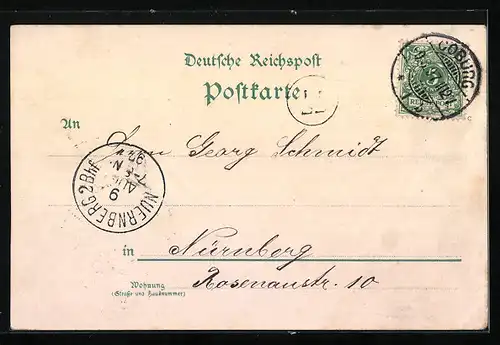 Deutsche Reichspost
Postkarte
COBURG
REICHSPOST
An
Herrn Georg Schmidt
NUERNBERG 2 Bhf
9
AUG
in Nürnberg
Wohnung
(Straße und Hausnummer)
Rosenaustr. 10